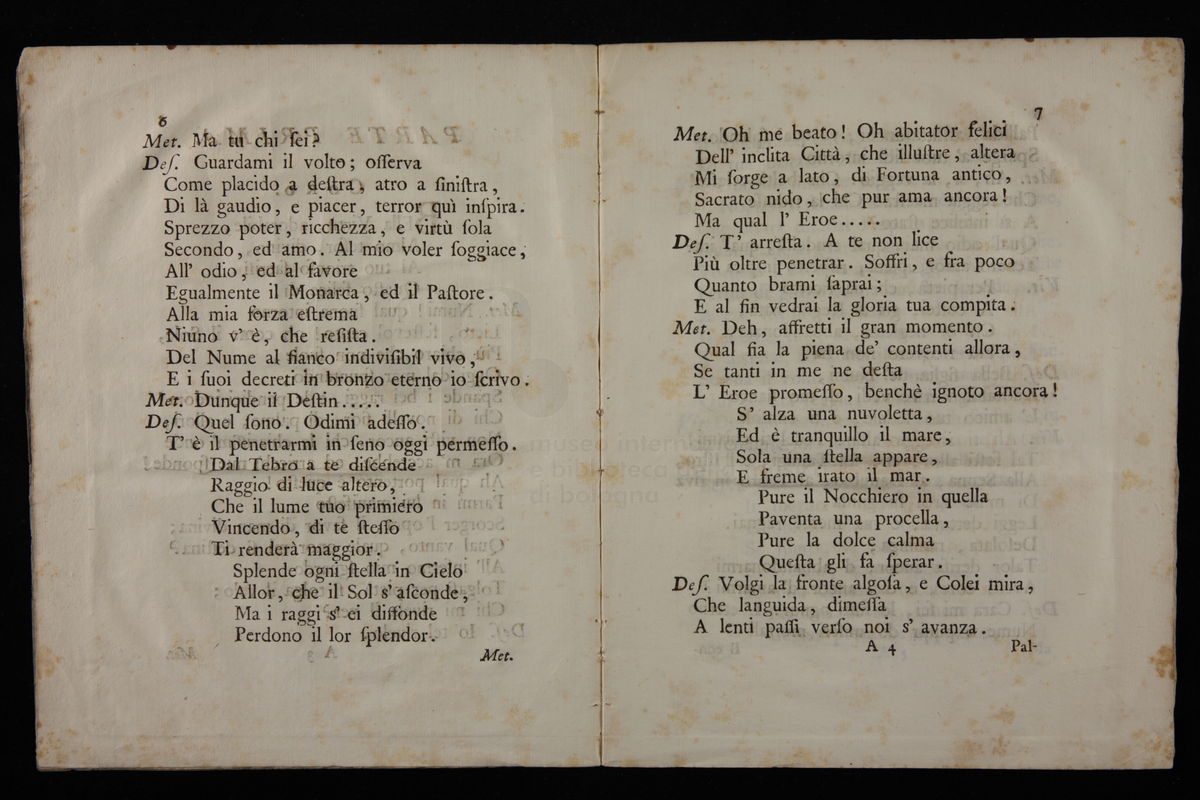 6
Met. Ma tu chi ſei?
Deſ. Guardami il volto; oſſerva
Come placido a deſtra, atro a ſiniſtra,
Di là gaudio, e piacer, terror quì inſpira.
Sprezzo poter, ricchezza, e virtù ſola
Secondo, ed amo. Al mio voler ſoggiace,
All' odio, ed al favore
Egualmente il Monarca, ed il Paſtore.
Alla mia forza eſtrema
Niuno v' è, che reſiſta.
Del Nume al fianco indiviſibil vivo,
E i ſuoi decreti in bronzo eterno io ſcrivo.
Met. Dunque il Deſtin.....
Deſ. Quel ſono. Odimi adeſſo.
T' è il penetrarmi in ſeno oggi permeſſo.
Dal Tebro a te diſcende
Raggio di luce altero,
Che il lume tuo primiero
Vincendo, di te ſteſſo
Ti renderà maggior.
Splende ogni ſtella in Cielo
Allor, che il Sol s' aſconde,
Ma i raggi s' ei diffonde
Perdono il lor ſplendor.
Met.
7
Met. Oh me beato! Oh abitator felici
Dell' inclita Città, che illuſtre, altera
Mi ſorge a lato, di Fortuna antico,
Sacrato nido, che pur ama ancora!
Ma qual l' Eroe.....
Deſ. T' arreſta. A te non lice
Più oltre penetrar. Soffri, e fra poco
Quanto brami ſaprai;
E al fin vedrai la gloria tua compita.
Met. Deh, affretti il gran momento.
Qual fia la piena de' contenti allora,
Se tanti in me ne deſta
L' Eroe promeſſo, benchè ignoto ancora!
S' alza una nuvoletta,
Ed è tranquillo il mare,
Sola una ſtella appare,
E freme irato il mar.
Pure il Nocchiero in quella
Paventa una procella,
Pure la dolce calma
Queſta gli fa ſperar.
Deſ. Volgi la fronte algoſa, e Colei mira,
Che languida, dimeſſa
A lenti paſſi verſo noi s' avanza.
A 4
Pal-